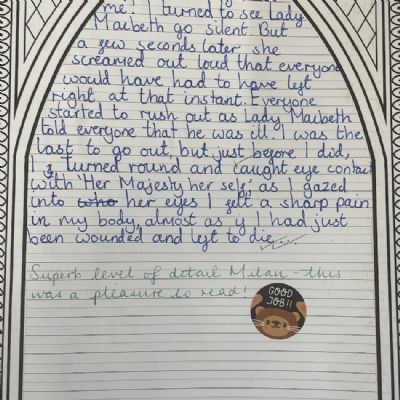 me. I turned to see Lady
Macbeth go silent. But
a few seconds later she
screamed out loud that everyone
would have had to have left
right at that instant. Everyone
started to rush out as Lady Macbeth
told everyone that he was ill. I was the
last to go out, but just before I did,
I turned round and caught eye contact
with 'Her Majesty her self,' as I gazed
into who her eyes I felt a sharp pain
in my body, almost as if I had just
been wounded and left to die...
Superb level of detail Milan - this
was a pleasure to read!
GOOD
JOB!!